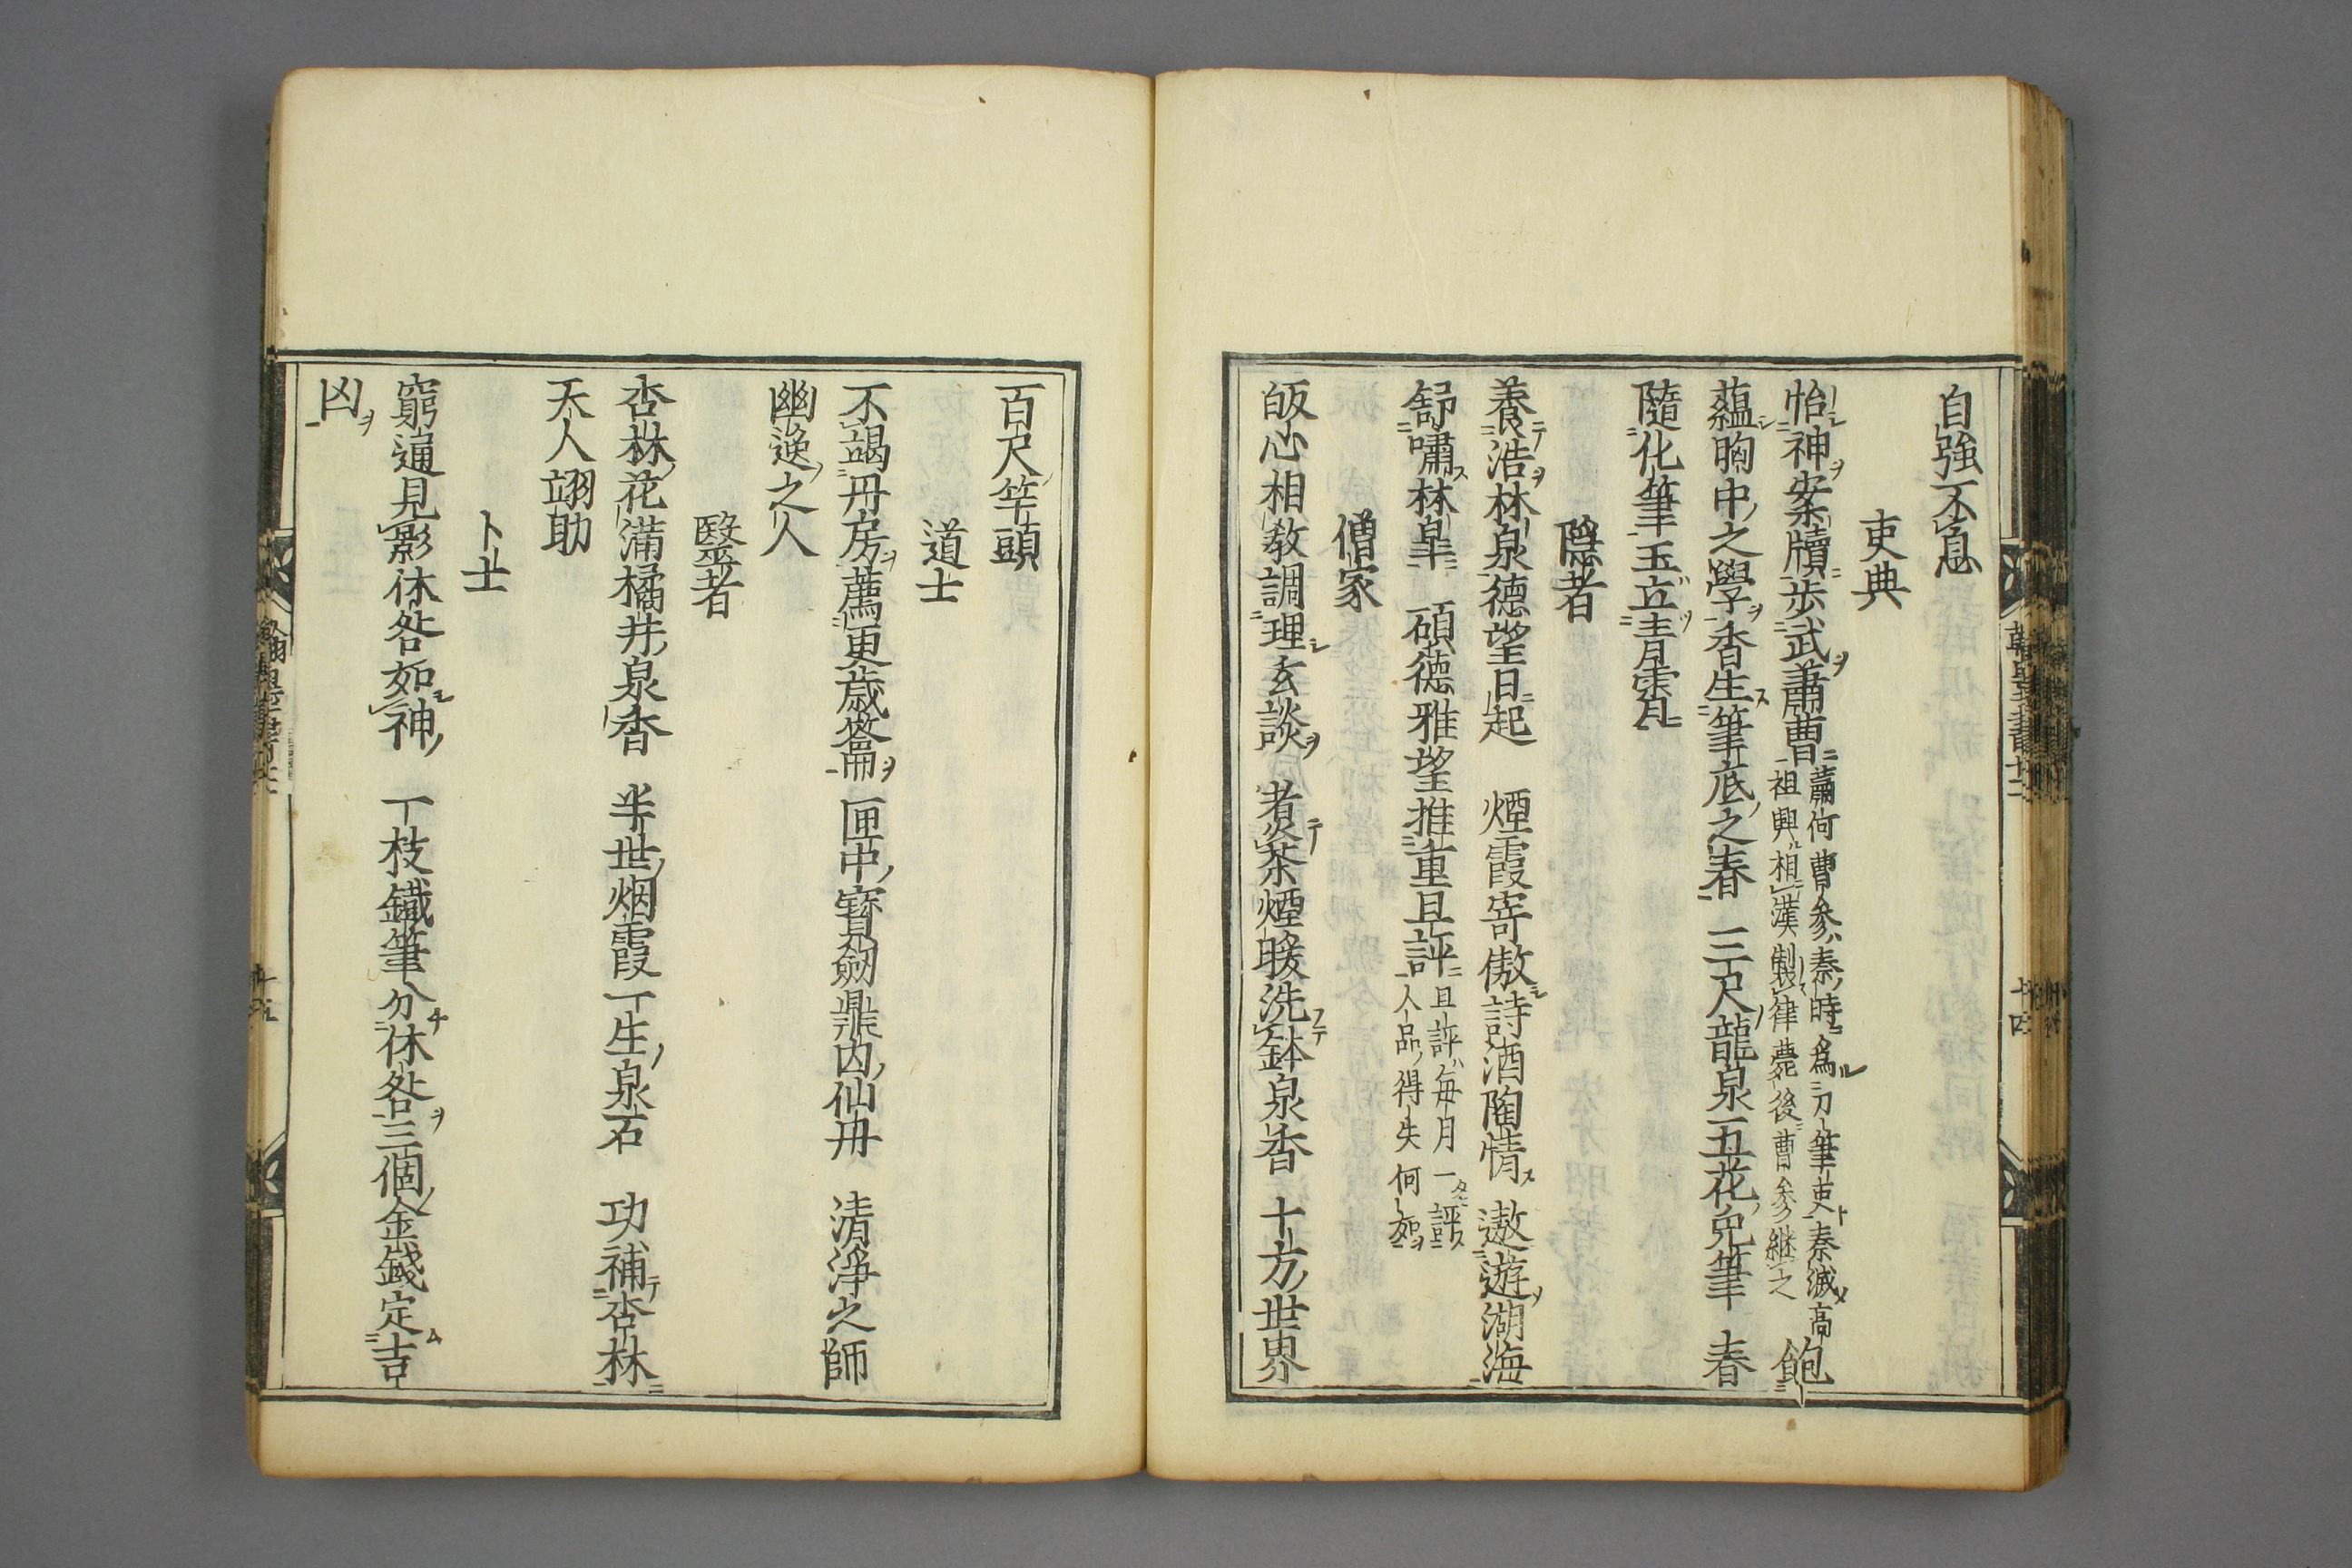 自強不息
吏典
怡神案牘歩武蕭曹
蕭何曹參秦時為刀筆吏秦滅高
祖興相漢製律薨後曹參継之
飽
蘊胸中之學香生筆底之春 三尺龍泉五花兔筆 春
隨化筆玉立青霄
隠者
養浩林泉德望日起 煙霞寄傲詩酒陶情 遨遊湖海
舒嘯林皐 碩德雅望推重且評
且評毎月一評
人品得失何如
僧家
皈心相教調理玄談 煮茶煙暖洗鉢泉香 十方世界
百尺竿頭
道士
不竭丹房薦更蔵簽籥 匣中寶劔鼎内仙丹 清淨之師
幽逸之人
醫者
杏林花滿橘井泉香 半世烟霞一生泉石 功補杏林
天人翊助
卜士
窮通見影休咎如神 一枝鐵筆分休咎三個金錢定吉
凶